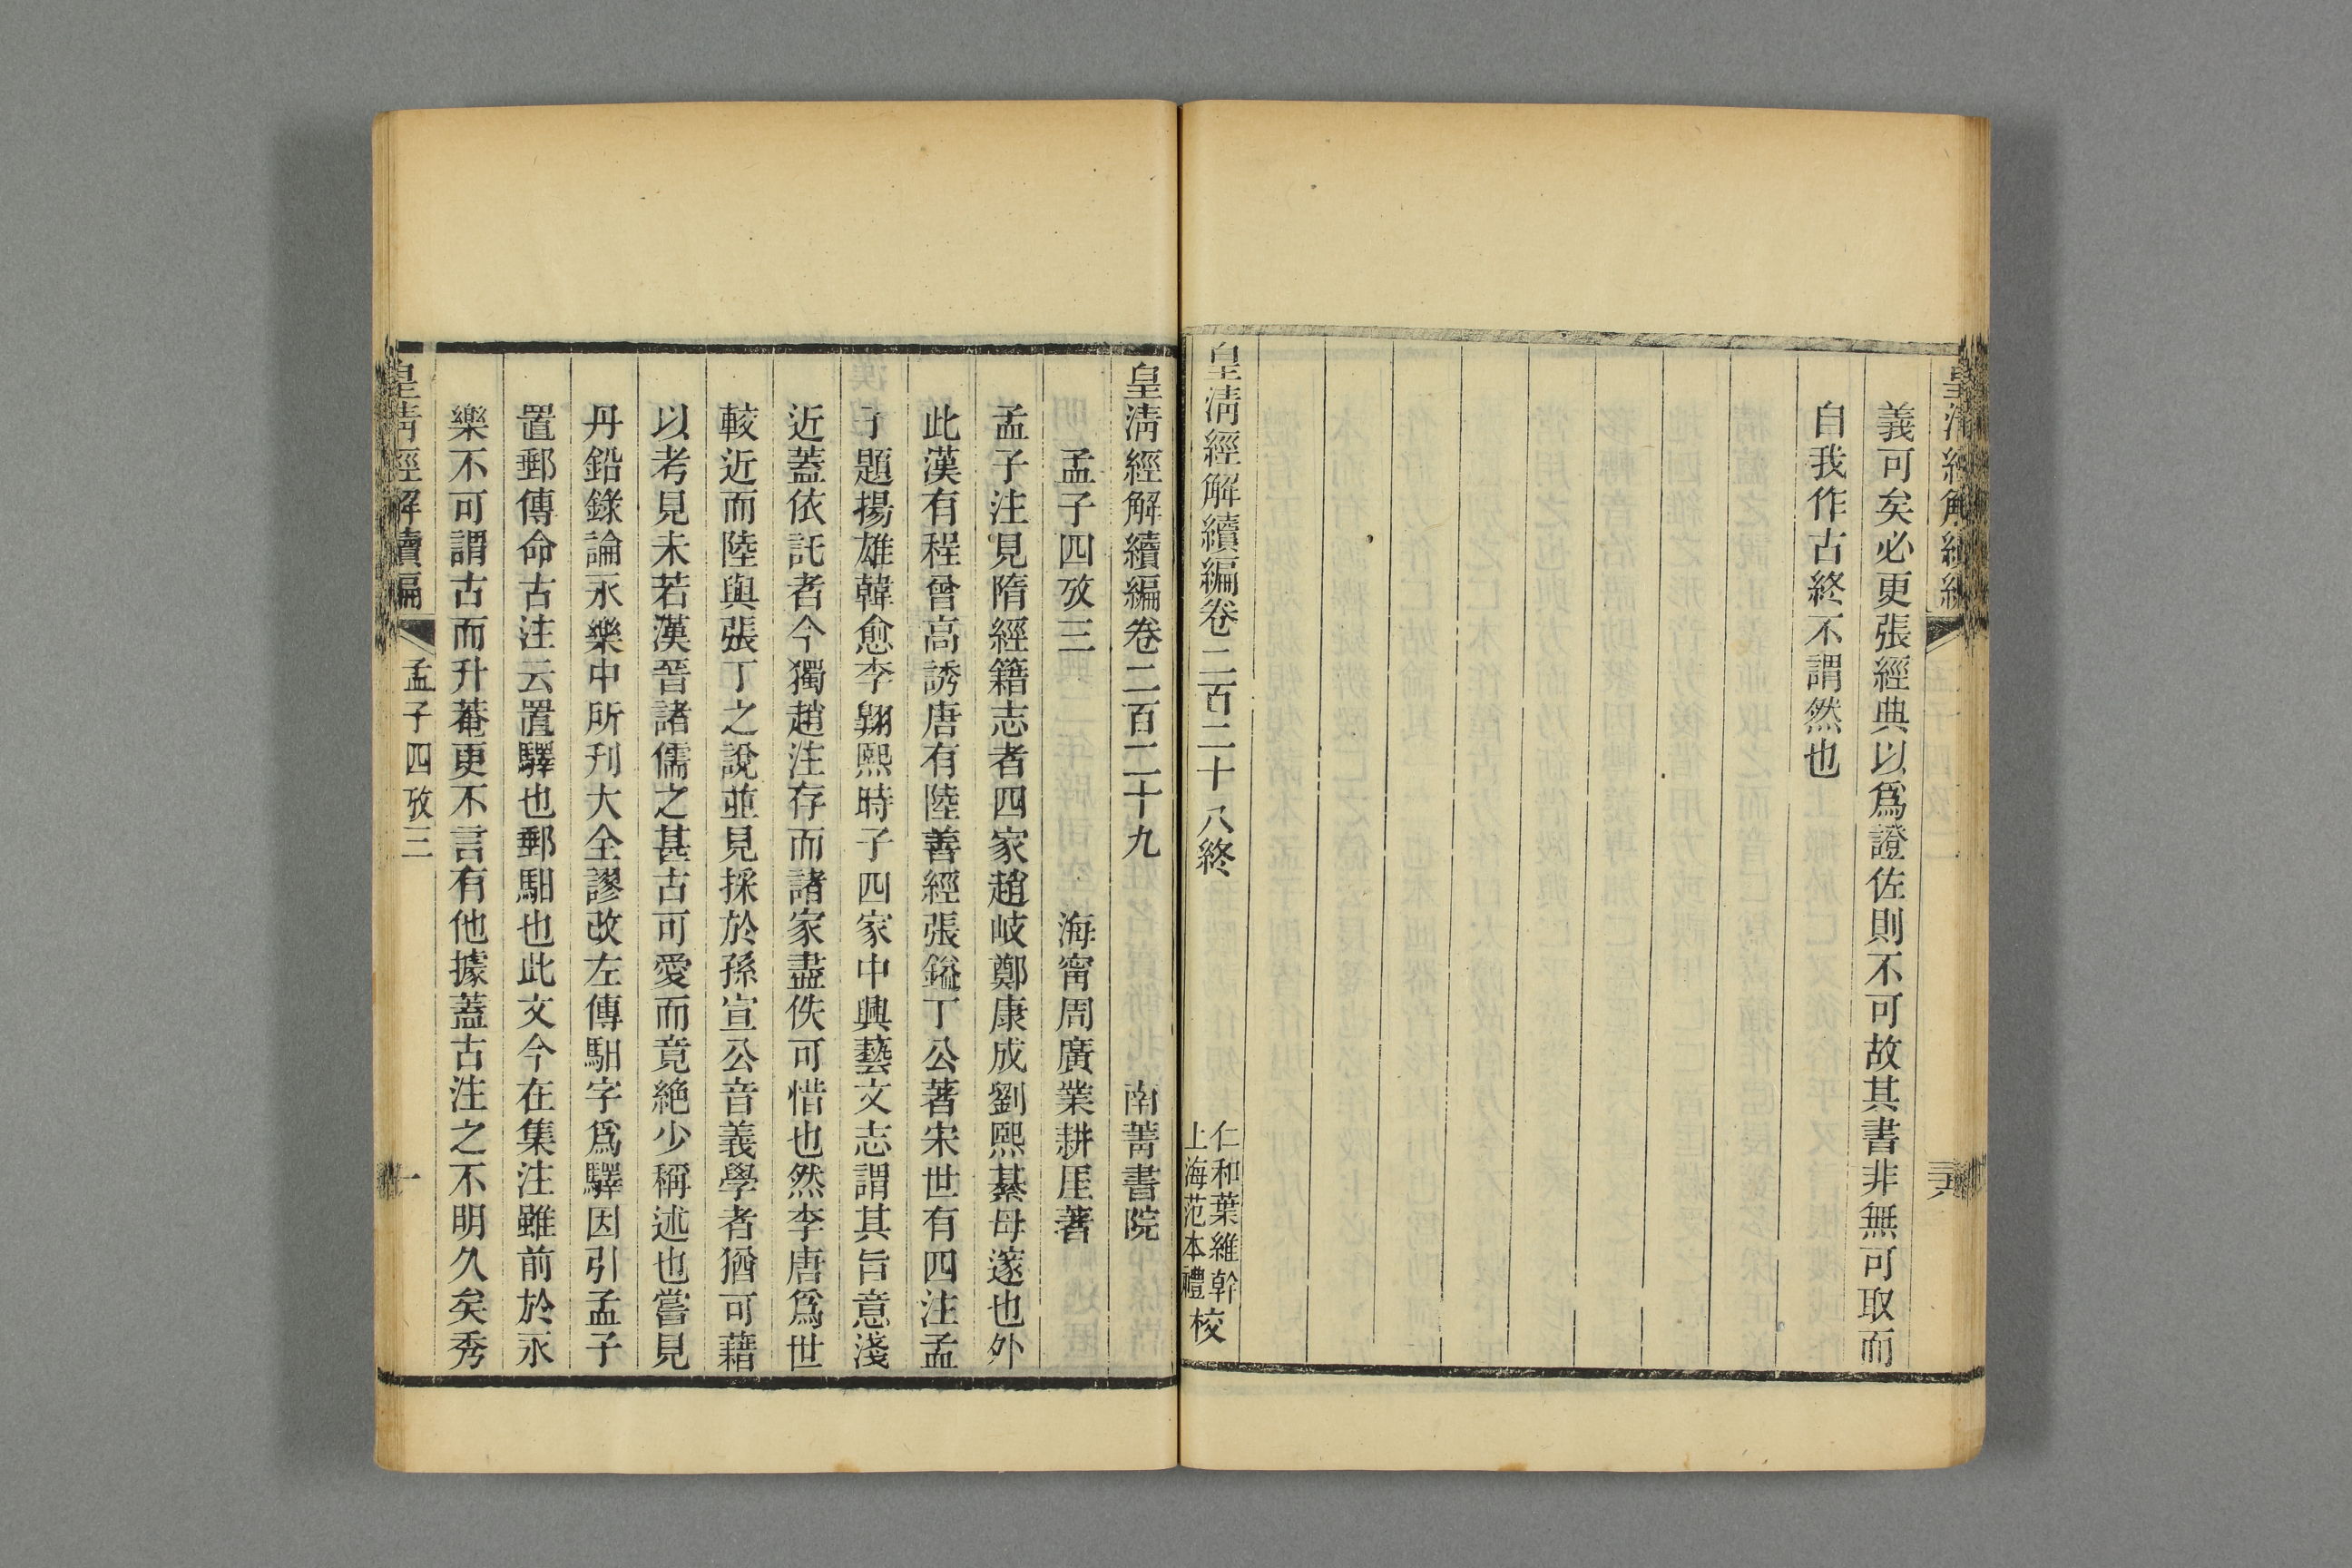 義可矣必更張經典以爲證佐則不可故其書非無可取而
自我作古終不謂然也
皇淸經解續編卷二百二十八終
仁和葉維幹
上海范本禮
校
皇淸經解續編卷二百二十九
南菁書院
孟子四攷三
海甯周廣業耕厓著
孟子注見隋經籍志者四家趙岐鄭康成劉熙綦母邃也外
此漢有程曾高誘唐有陸善經張鎰丁公著宋世有四注孟
子題揚雄韓愈李翱熙時子四家中興藝文志謂其旨意淺
近蓋依託者今獨趙注存而諸家盡佚可惜也然李唐爲世
較近而陸與張丁之說並見採於孫宣公音義學者猶可藉
以考見未若漢晉諸儒之甚古可愛而竟絶少稱述也嘗見
丹鉛錄論永樂中所刋大全謬改左傳馹字爲驛因引孟子
置郵傳命古注云置驛也郵馹也此文今在集注雖前於永
樂不可謂古而升菴更不言有他據蓋古注之不明久矣秀
皇淸經解續編
孟子四攷三
一